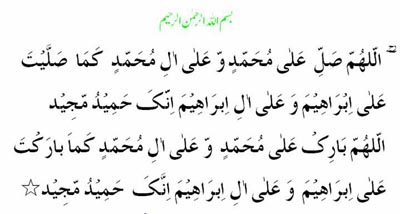 بسم اللہ الرحمٰن الرحیم
الّلھُمّ صَلِّ عَلٰی مُحَمّدٍ وّ عَلٰی اٰلِ مُحَمّدٍ کَمَا صَلَّیْتَ
عَلٰی اِبْرَاھِیْمَ وَ عَلٰی اٰلِ اِبرَاھِیْمَ اِنّکَ حَمِیْدُ مّجِیْد
الّلھُمّ بَارِکْ عَلٰی مُحَمّدٍ وّ عَلٰی اٰلِ مُحَمّدٍ کَمَا بارَکْتَ
عَلٰی اِبْرَاھِیْمَ وَ عَلٰی اٰلِ اِبرَاھِیْمَ اِنّکَ حَمِیْدُ مّجِیْد☆